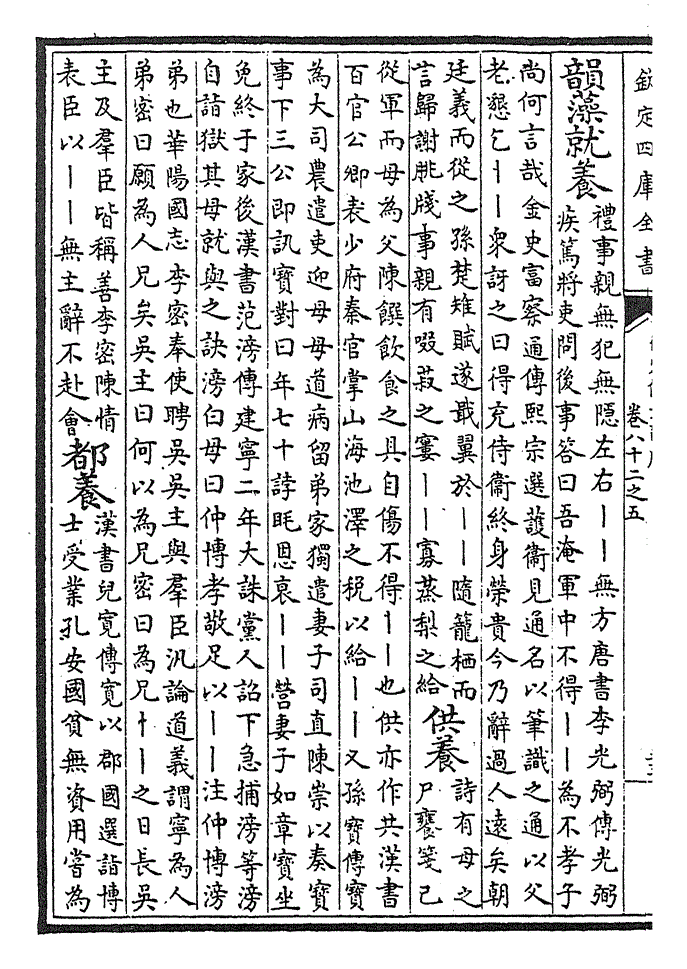 欽定四庫全書
卷八十二之五
韻藻就養
禮事親無犯無隠左右丨丨無方唐書李光弼傳光弼
疾篤將吏問後事答曰吾淹軍中不得丨丨為不孝子
尚何言哉金史富察通傳熙宗選護衞見通名以筆識之通以父
老懇乞丨丨衆訝之曰得充侍衞終身榮貴今乃辭過人逺矣朝
廷義而從之孫楚雉賦遂戢翼於丨丨隨籠栖而
言歸謝朓牋事親有啜菽之寠丨丨寡蒸梨之給
供養
詩有母之
尸饔箋己
從軍而母為父陳饌飲食之具自傷不得丨丨也供亦作共漢書
百官公卿表少府秦官掌山海池澤之稅以給丨丨又孫寶傳寶
為大司農遣吏迎母母道病留弟家獨遣妻子司直陳崇以奏寶
事下三公即訊寶對曰年七十誖眊恩衰丨丨營妻子如章寶坐
免終于家後漢書范滂傳建寧二年大誅黨人詔下急捕滂等滂
自詣獄其母就與之訣滂白母曰仲博孝敬足以丨丨注仲博滂
弟也華陽國志李密奉使聘吳吳主與羣臣汎論道義謂寧為人
弟密曰願為人兄矣吳主曰何以為兄密曰為兄丨丨之日長吳
主及羣臣皆稱善李密陳情
表臣以丨丨無主辭不赴會
都養
漢書兒寛傳寛以郡國選詣博
士受業孔安國貧無資用嘗為